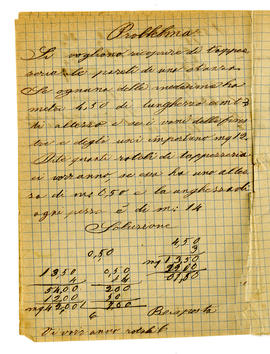 Problema
Si vogliono ricoprire di tappez
zeria le pareti di una stanza.
Se ognuna delle medesime ha
metri 4,50 di lunghezza e m 3
di altezza e se i vani delle fines
tre e degli usci importano mq 12.
Dite quanti rotoli di tapperzeria
ci vorranno se essa ha una altez
za di m: 0,50 e la lunghezza di
ogni pezzo è di m: 14
Soluzione
4,50
0,50 3
13,50 0,50 mq 13,50
4 14
54,00 200
12,00 50
mq 42,00 7,00
6 Risposta
Ci vorranno rotoli 6